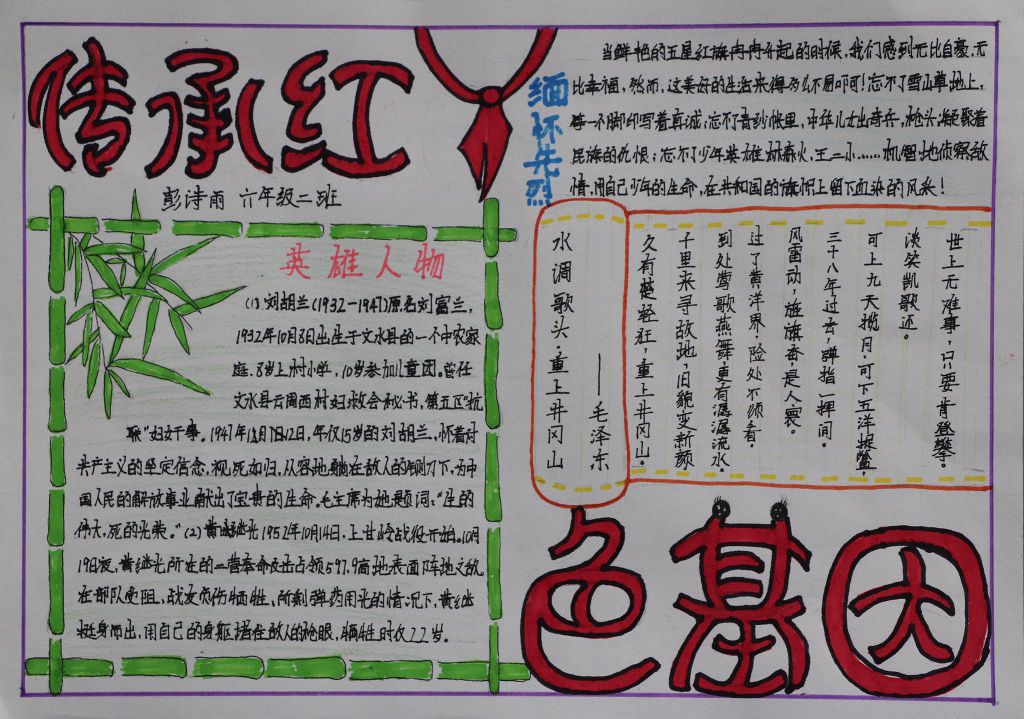 传承红
彭诗雨 六年级二班
英雄人物
(1) 刘胡兰(1932—1947)原名刘富兰,
1932年10月8日出生于文水县的一个中农家
庭. 8岁上村小学, 10岁参加儿童团。曾任
文水县云周西村妇救会秘书, 第五区“抗
联”妇女干事。1947年1月12日, 年仅15岁的刘胡兰, 怀着对
共产主义的坚定信念, 视死如归, 从容地躺在敌人的铡刀下, 为中
国人民的解放事业献出了宝贵的生命。毛主席为她题词:“生的
伟大, 死的光荣。”(2) 黄继光1952年10月14日, 上甘岭战役开始。10月
19日夜, 黄继光所在的二营奉命反击占领597.9高地表面阵地之敌,
在部队受阻, 战友负伤牺牲, 所剩弹药用光的情况下, 黄继
挺身而出, 用自己的身躯堵住敌人的枪眼, 牺牲时仅22岁。
缅怀先烈
当鲜艳的五星红旗冉冉升起的时候, 我们感到无比自豪, 无
比幸福, 然而, 这美好的生活来得多么不易啊可! 忘不了雪山草地上,
每一个脚印写着真诚; 忘不了青纱帐里, 中华儿女出奇兵, 枪头凝聚着
民族的仇恨; 忘不了少年英雄林森火, 王二小……机智地侦察敌
情, 用自己少年的生命, 在共和国的旗帜上留下血染的风采!
水调歌头·重上井冈山
——毛泽东
久有楚轻狂, 重上井冈山。
千里来寻故地, 旧貌变新颜
到处莺歌燕舞, 更有潺潺流水。
过了黄洋界, 险处不须看。
风雷动, 旌旗奋, 是人寰。
三十八年过去, 弹指一挥间。
可上九天揽月, 可下五洋捉鳖,
谈笑凯歌还。
世上无难事, 只要肯登攀。
色基因